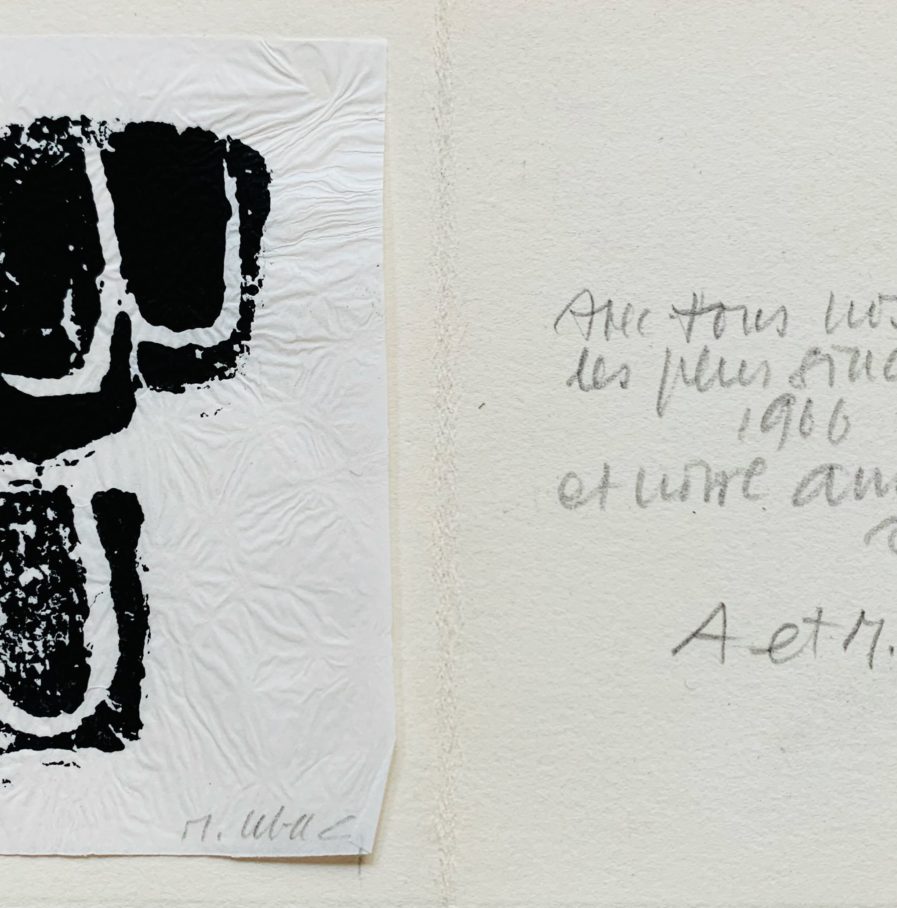 M. Ubac
Avec tous no
les plus sinc
1966
et notre am
A et M.